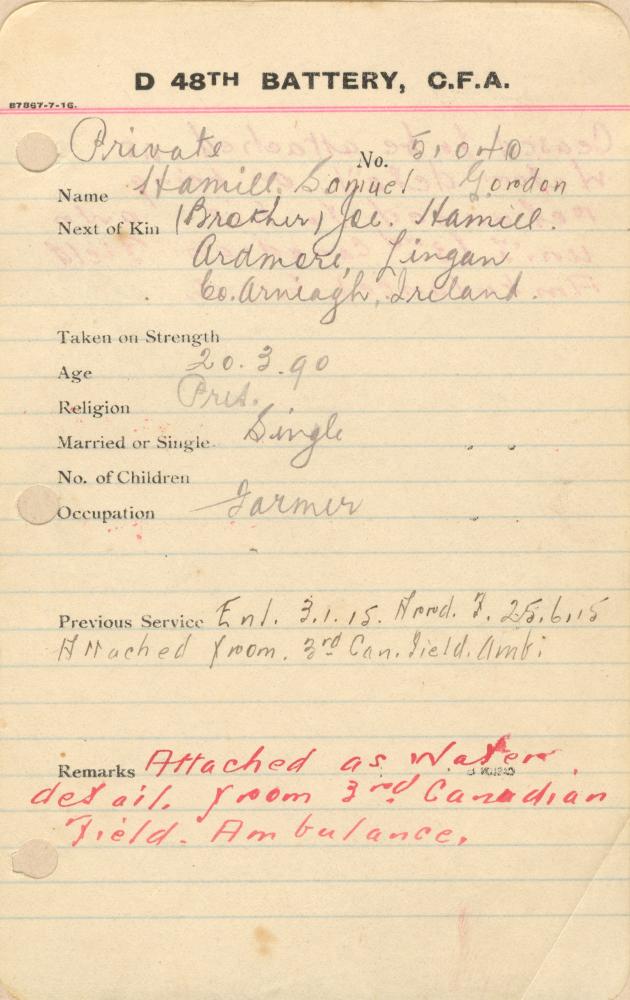 D 48TH BATTERY, C.F.A.
87867-7-16.
Private No. 51040
Name Hamill. Samuel Gordon
Next of Kin (Brother) Joe. Hamill.
Ardmore, Lingan
Co. Armagh, Ireland.
Taken on Strength
Age 20.3.90
Religion Pres.
Married or Single. Single
No. of Children
Occupation Farmer
Previous Service Enl. 3.1.15. Arrd. F. 25.6.15
Attached from. 3rd Can. Field. Amb.
Remarks Attached as Water
detail. from 3rd Canadian
Field. Ambulance.